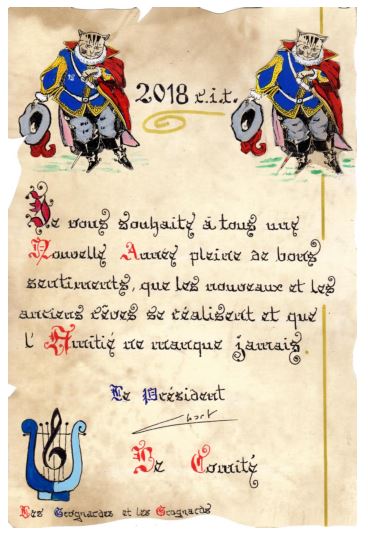 2018 r.i.t.
Je vous souhaite à tous une
Nouvelle Année pleine de bons
sentiments, que les nouveaux et les
anciens rêves se réalisent et que
l'Amitié ne manque jamais.
Le Président
Le Comité
Les Grognardes et les Grognards